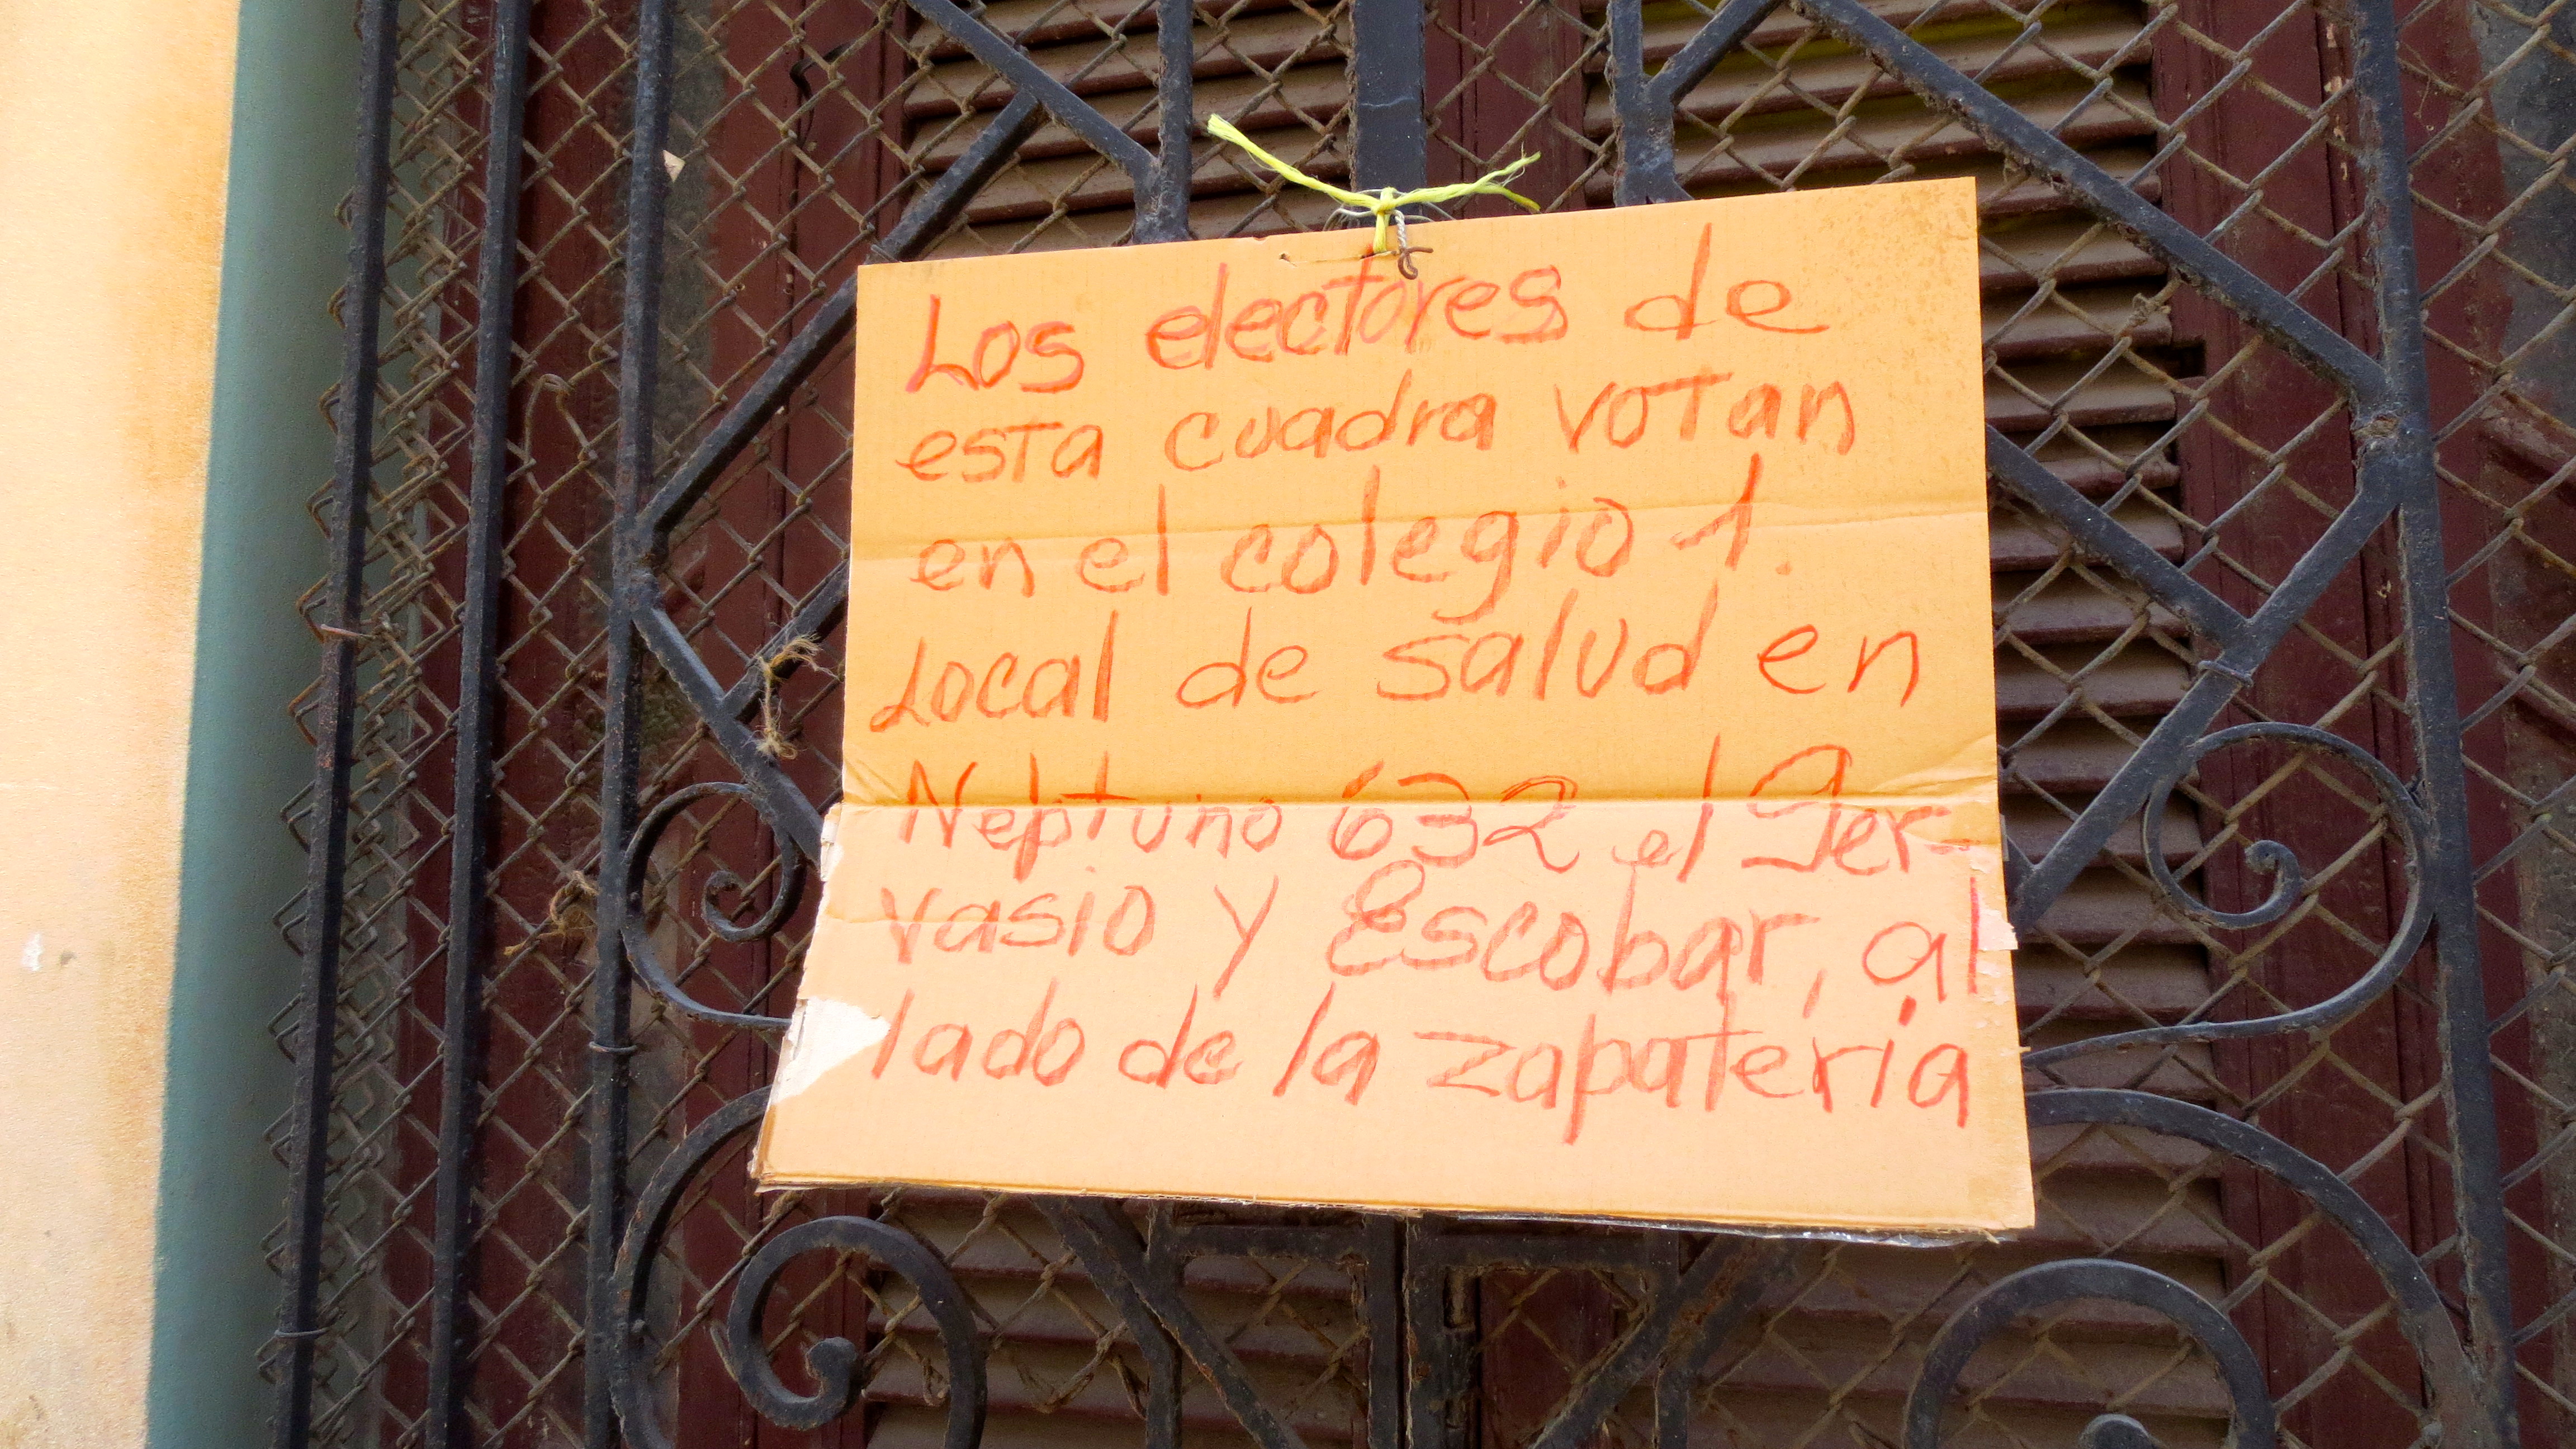 Los electores de
esta cuadra votan
en el colegio 1.
Local de salud en
Neptuno 632 e/ Ger-
vasio y Escobar, al
lado de la zapatería